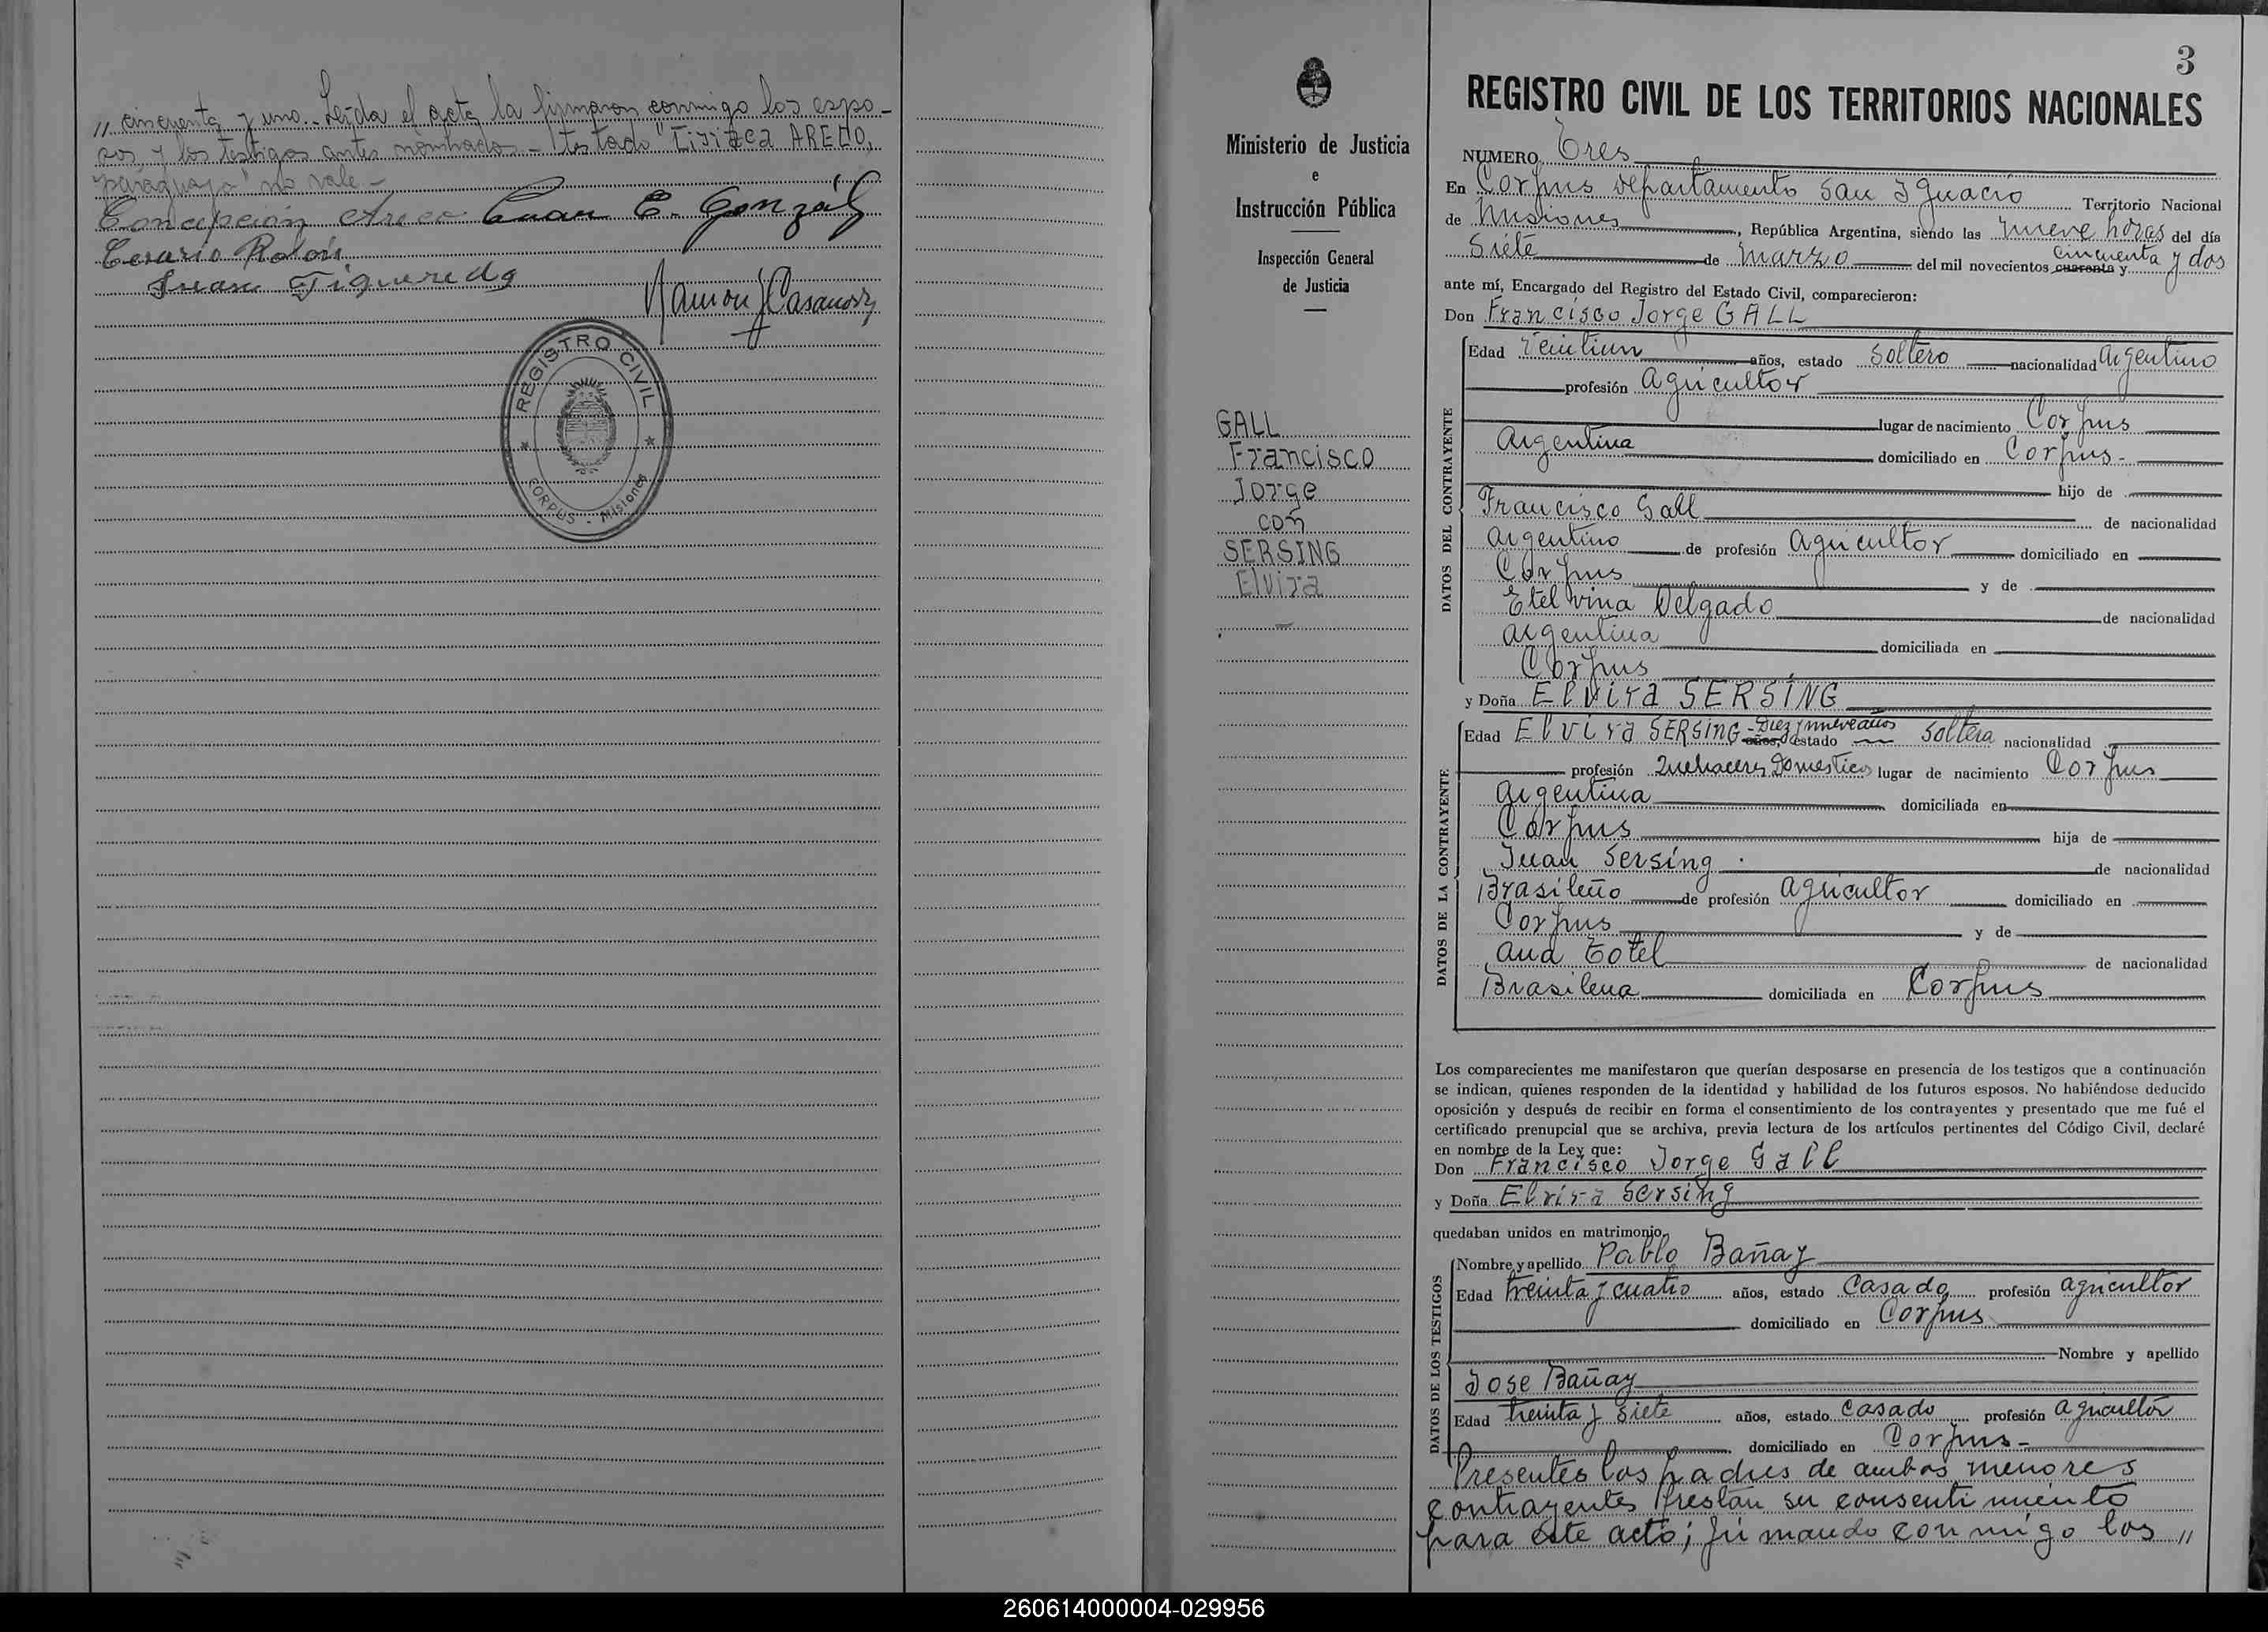 // cincuenta y uno.- Leída el acta la firmaron conmigo los espo-
sos y los testigos antes nombrados.- Testado "
paraguaya" no vale-
Concepción Areco Juan E. González
Cesario Rolón
Juan Figueredo
Ramon J Casanova
REGISTRO CIVIL
CORPUS - Misiones
3
Ministerio de Justicia
e
Instrucción Pública
Inspección General
de Justicia
GALL
Francisco
Jorge
con
SERSING
Elvira
REGISTRO CIVIL DE LOS TERRITORIOS NACIONALES
NUMERO Tres
En Corpus departamento San Ignacio Territorio Nacional
de Misiones, República Argentina, siendo las nueve horas del día
Siete de Marzo del mil novecientos cuarenta y cincuenta y dos
ante mí, Encargado del Registro del Estado Civil, comparecieron:
Don Francisco Jorge GALL
DATOS DEL CONTRAYENTE
Edad Veintiun años, estado Soltero nacionalidad Argentino
profesión Agricultor
lugar de nacimiento Corpus
Argentina domiciliado en Corpus-
hijo de
Francisco Gall de nacionalidad
Argentino de profesión Agricultor domiciliado en
Corpus y de
Etelvina Delgado de nacionalidad
Argentina domiciliada en
Corpus
y Doña Elvira SERSING
DATOS DE LA CONTRAYENTE
Edad Elvira SERSING - Diez y nueve años años, estado Soltera nacionalidad
profesión Quehaceres Domesticos lugar de nacimiento Corpus
Argentina domiciliada en
Corpus hija de
Juan Sersing de nacionalidad
Brasileño de profesión Agricultor domiciliado en
Corpus y de
Ana Totel de nacionalidad
Brasilena domiciliada en Corpus
Los comparecientes me manifestaron que querían desposarse en presencia de los testigos que a continuación
se indican, quienes responden de la identidad y habilidad de los futuros esposos. No habiéndose deducido
oposición y después de recibir en forma el consentimiento de los contrayentes y presentado que me fué el
certificado prenupcial que se archiva, previa lectura de los artículos pertinentes del Código Civil, declaré
en nombre de la Ley que:
Don Francisco Jorge Gall
y Doña Elvira Sersing
quedaban unidos en matrimonio.
DATOS DE LOS TESTIGOS
Nombre y apellido Pablo Bañay
Edad treinta y cuatro años, estado Casado profesión Agricultor
domiciliado en Corpus
Nombre y apellido
Jose Bañay
Edad treinta y siete años, estado Casado profesión Agricultor
domiciliado en Corpus-
Presentes los padres de ambos menores
contrayentes prestan su consentimiento
para este acto; firmando conmigo los //
260614000004-029956